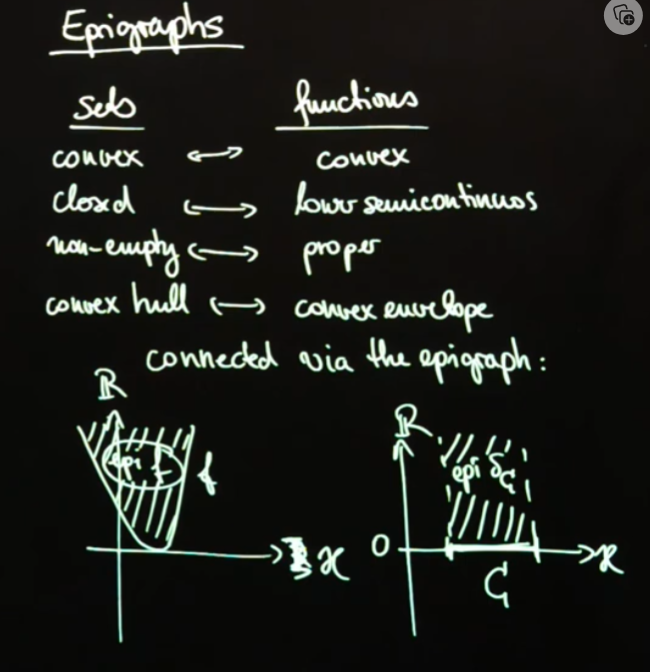 Epigraphs
sets functions
convex ↔ convex
closed ↔ lower semicontinuos
non-empty ↔ proper
convex hull ↔ convex envelope
connected via the epigraph:
ℝ ℝ
epi f f epi δC
0
X X
C